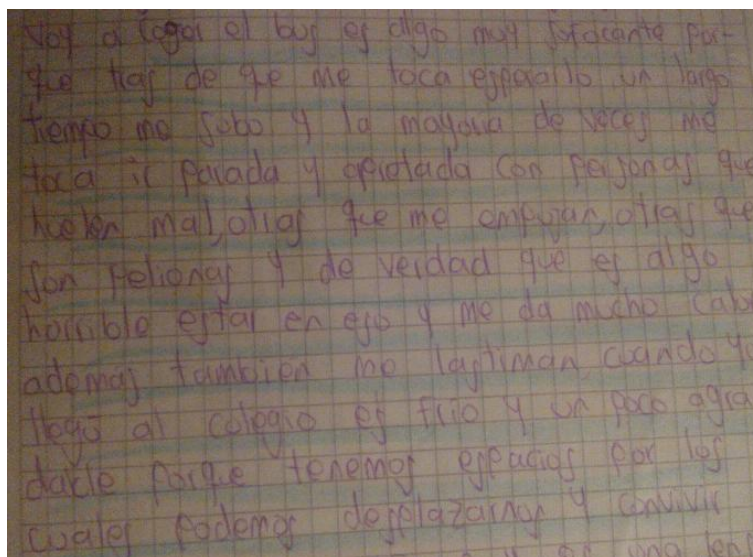 Voy a coger el bus es algo muy sofocante por-
que tras de que me toca esperarlo un largo
tiempo me subo y la mayoria de veces me
toca ir parada y apretada con personas que
huelen mal, otras que me empujan, otras que
son pelionas y de verdad que es algo
horrible estar en eso y me da mucho calo
ademas tambien me lastiman, cuando y
llego al colegio es frio y un poco agra
dable porque tenemos espacios por los
cuales podemos desplazarnos y convivir